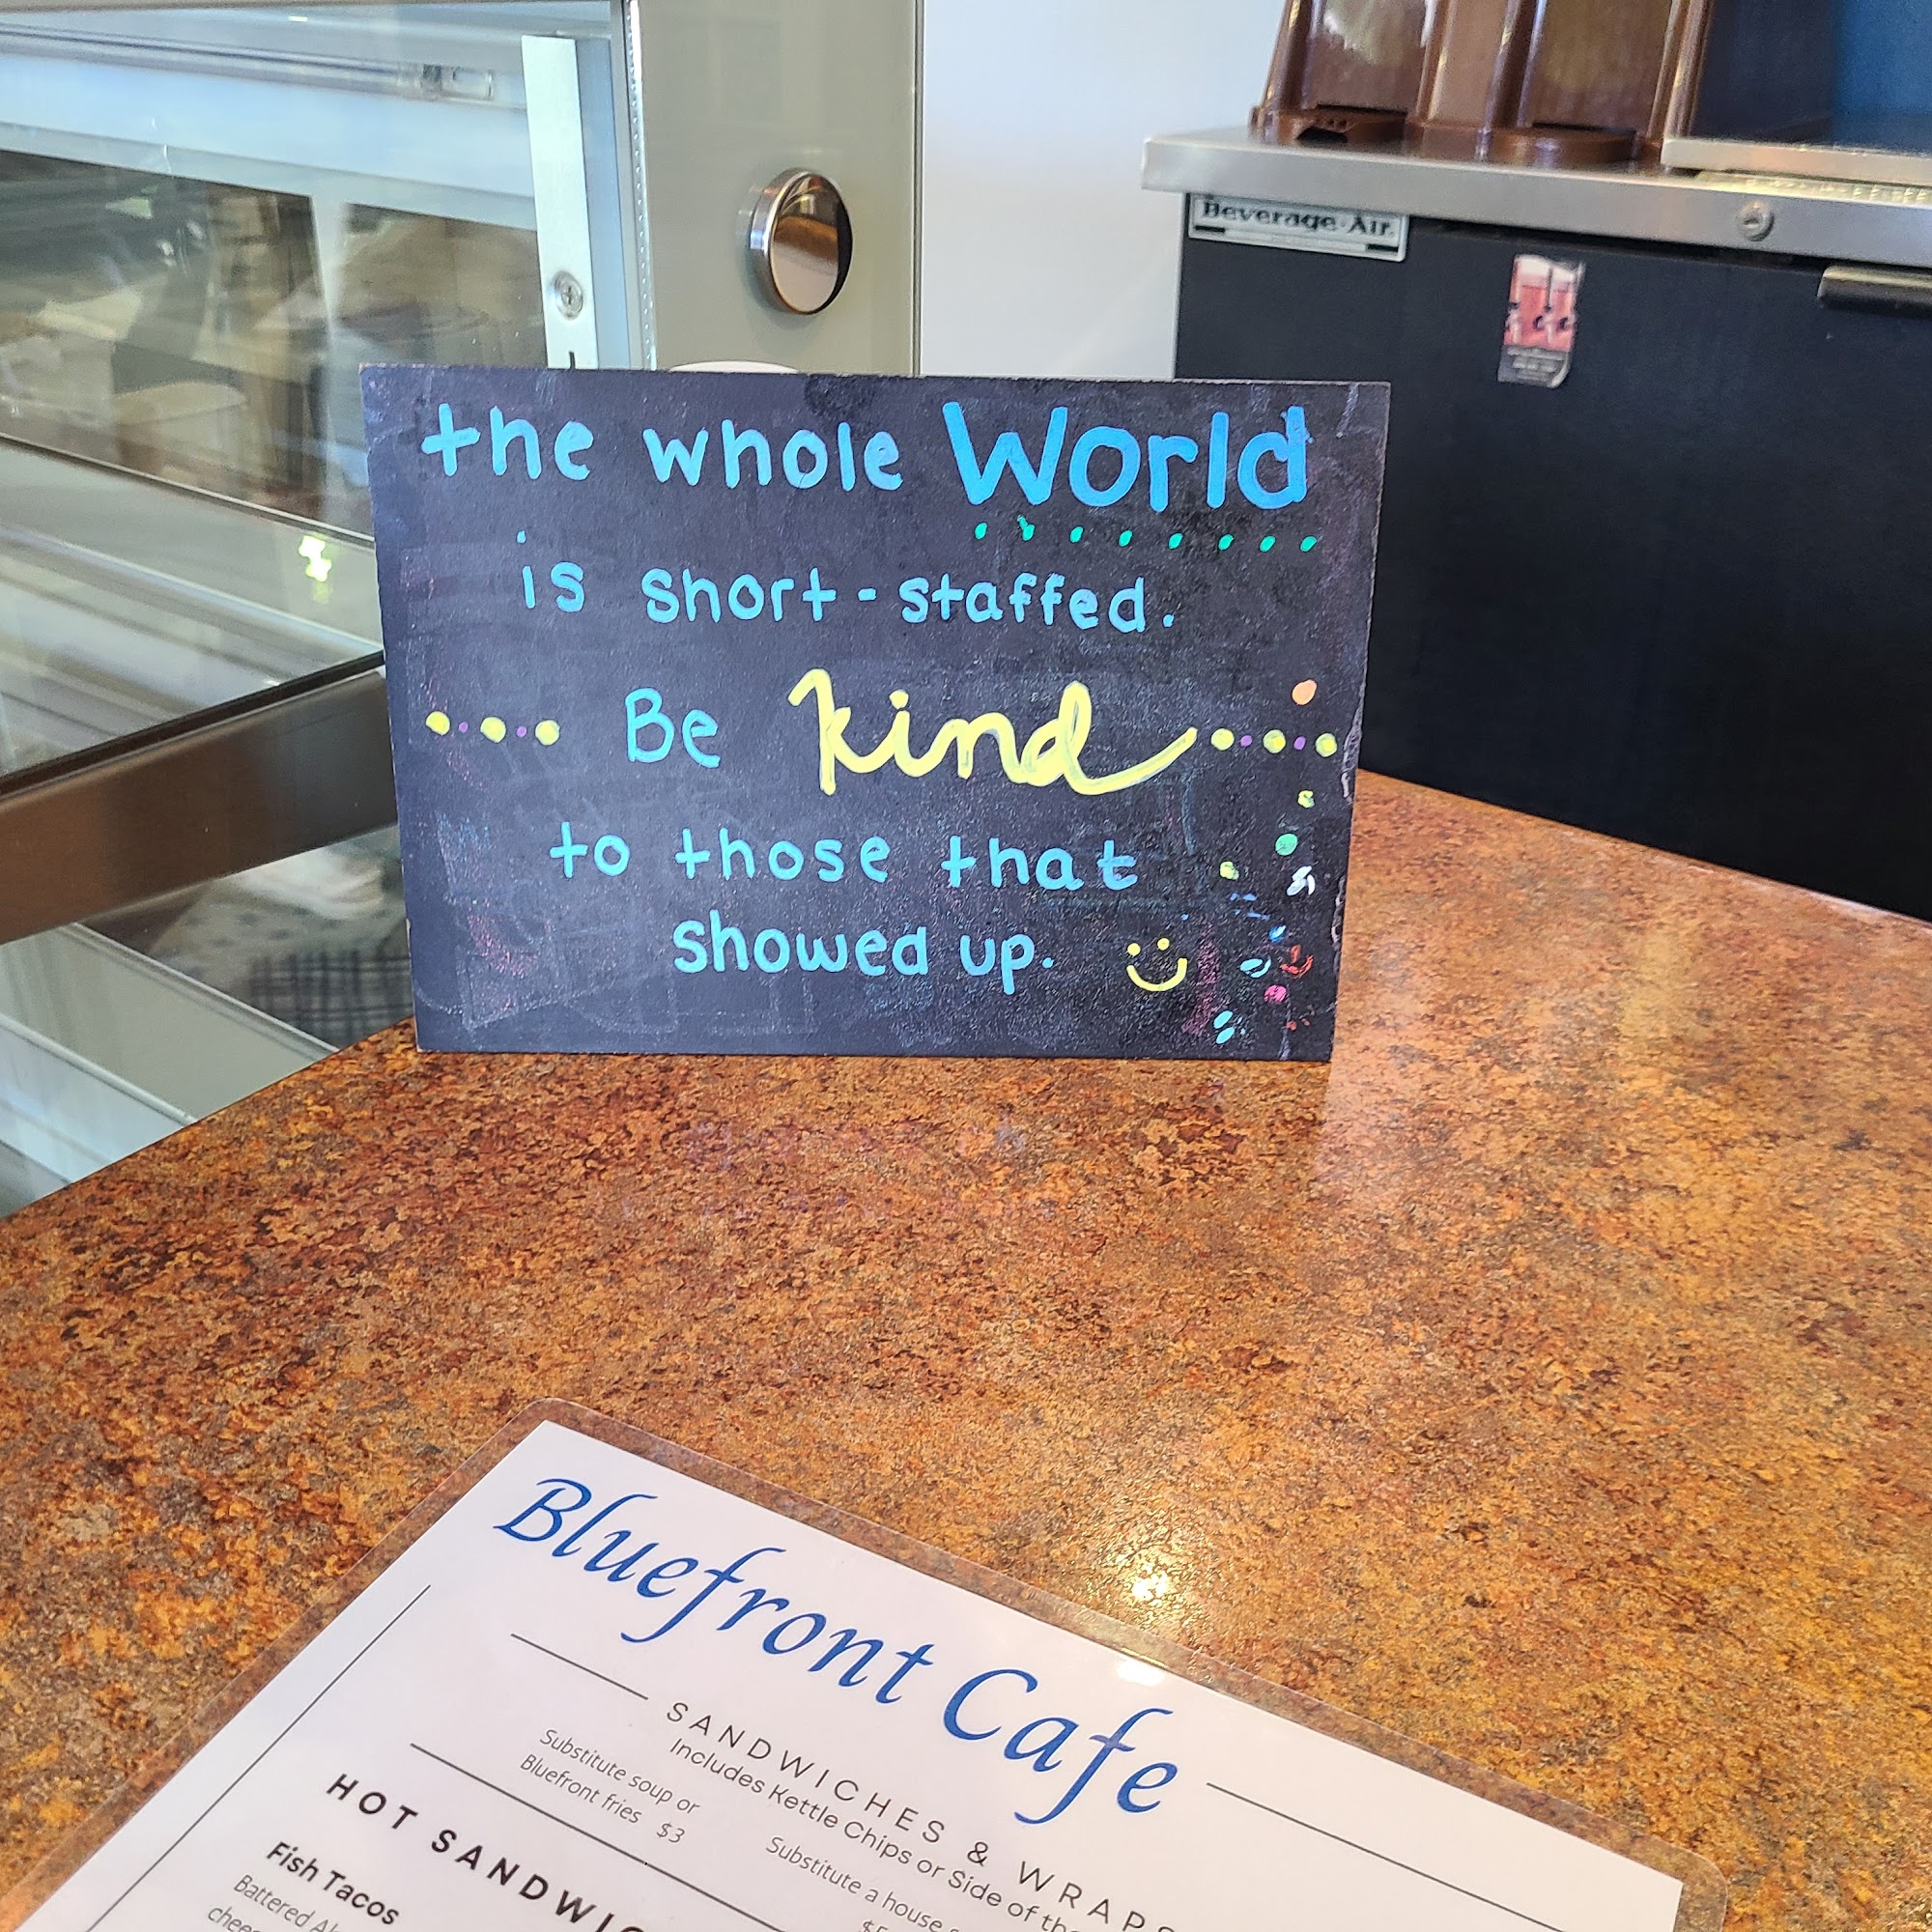 Beverage-Air
the whole World
is short-staffed.
Be kind
to those that
showed up.
Bluefront Cafe
SANDWICHES & WRAPS
Includes Kettle Chips or Side of the
Substitute soup or
Bluefront fries $3
Substitute a house
HOT SANDWIC
Fish Tacos
Battered